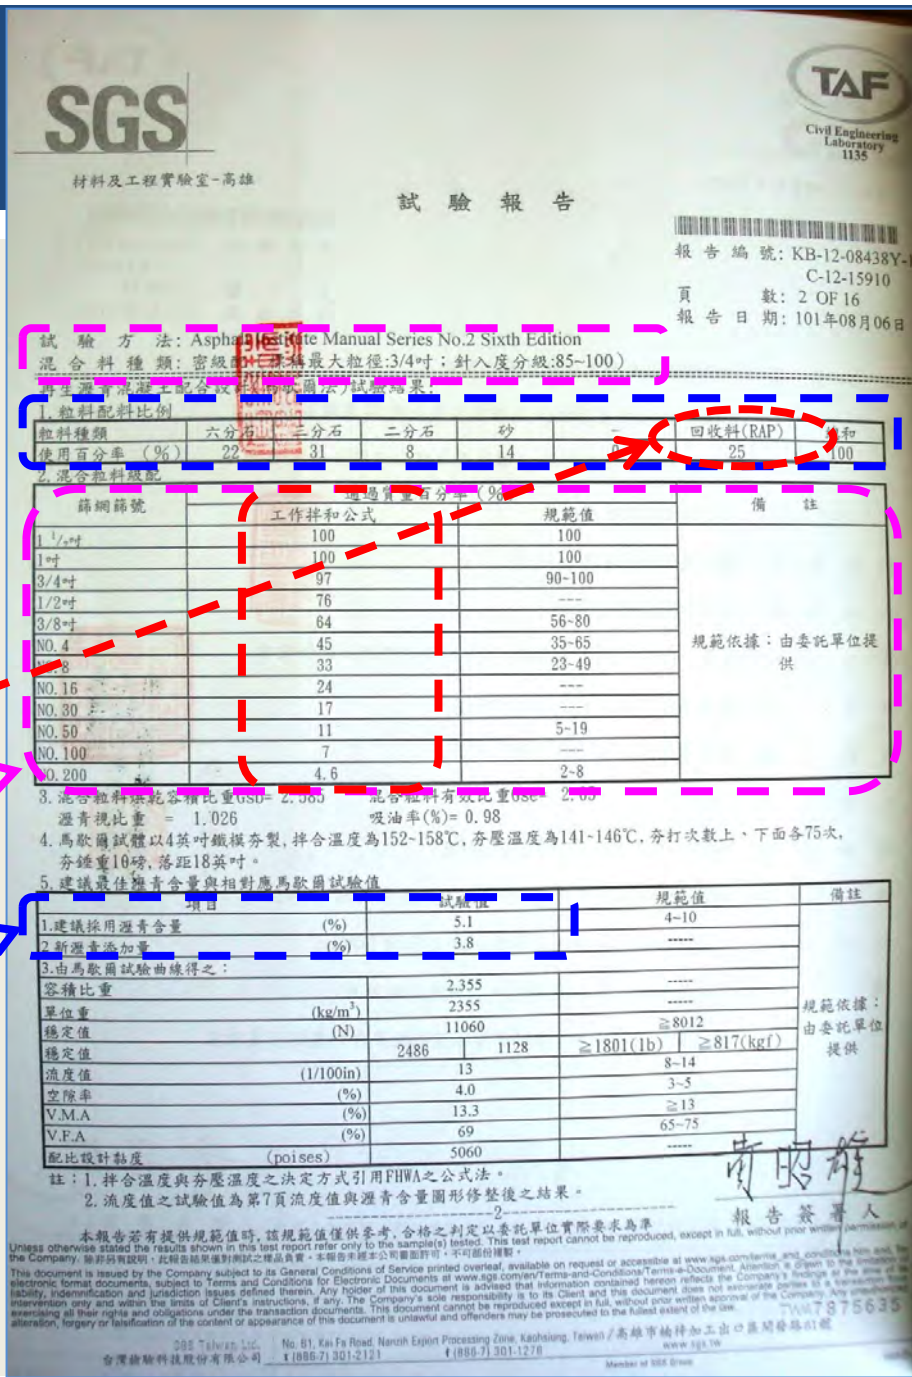 SGS
TAF
Civil Engineering
Laboratory
1135
材料及工程實驗室-高雄
試 驗 報 告
報 告 編 號: KB-12-08438Y-
C-12-15910
頁 數: 2 OF 16
報 告 日 期: 101年08月06日
試 驗 方 法: Asphalt Institute Manual Series No.2 Sixth Edition
混 合 料 種 類: 密級配 稱最大粒徑:3/4吋；針入度分級:85~100)
再生瀝青混凝土配合設計 試驗結果:
1. 粒料配料比例
粒料種類 六分石 三分石 二分石 砂 - 回收料(RAP) 總和
使用百分率 (%) 22 31 8 14 0 25 100
2. 混合粒料級配
篩網篩號 通過質量百分率 (%) 備 註
工作拌和公式 規範值
1 1/2吋 100 100
1吋 100 100
3/4吋 97 90-100
1/2吋 76 ---
3/8吋 64 56-80
NO. 4 45 35-65 規範依據：由委託單位提供
NO. 8 33 23-49
NO. 16 24 ---
NO. 30 17 ---
NO. 50 11 5-19
NO. 100 7 ---
NO. 200 4.6 2-8
3. 混合粒料烘乾容積比重Gsb= 2.585 混合粒料有效比重Gse= 2.65
瀝青視比重 = 1.026 吸油率(%)= 0.98
4. 馬歇爾試體以4英吋鐵模夯製, 拌合溫度為152~158℃, 夯壓溫度為141~146℃, 夯打次數上、下面各75次,
夯錘重10磅, 落距18英吋。
5. 建議最佳瀝青含量與相對應馬歇爾試驗值
項目 試驗值 規範值 備註
1.建議採用瀝青含量 (%) 5.1 4~10
2.新瀝青添加量 (%) 3.8 -----
3.由馬歇爾試驗曲線得之：
容積比重 2.355 -----
單位重 (kg/m³) 2355 ----- 規範依據：由委託單位提供
穩定值 (N) 11060 ≧8012
穩定值 2486 1128 ≧1801(lb) ≧817(kgf)
流度值 (1/100in) 13 8~14
空隙率 (%) 4.0 3~5
V.M.A (%) 13.3 ≧13
V.F.A (%) 69 65~75
配比設計黏度 (poises) 5060 -----
註：1. 拌合溫度與夯壓溫度之決定方式引用FHWA之公式法。
2. 流度值之試驗值為第7頁流度值與瀝青含量圖形修整後之結果。
-2-
報 告 簽 署 人
本報告若有提供規範值時, 該規範值僅供參考, 合格之判定以委託單位實際要求為準
Unless otherwise stated the results shown in this test report refer only to the sample(s) tested. This test report cannot be reproduced, except in full, without prior written permission of
the Company. 除非另有說明，此報告結果僅對測試之樣品負責。本報告未經本公司書面許可，不可部份複製。
This document is issued by the Company subject to its General Conditions of Service printed overleaf, available on request or accessible at www.sgs.com/terms_and_conditions.htm and, for
electronic format documents, subject to Terms and Conditions for Electronic Documents at www.sgs.com/en/Terms-and-Conditions/Terms-e-Document. Attention is drawn to the limitation of
liability, indemnification and jurisdiction issues defined therein. Any holder of this document is advised that information contained hereon reflects the Company's findings at the time of its
intervention only and within the limits of Client's instructions, if any. The Company's sole responsibility is to its Client and this document does not exonerate parties to a transaction from
exercising all their rights and obligations under the transaction documents. This document cannot be reproduced except in full, without prior written approval of the Company. Any unauthorized
alteration, forgery or falsification of the content or appearance of this document is unlawful and offenders may be prosecuted to the fullest extent of the law.
7875635
SGS Taiwan Ltd. No. 61, Kai Fa Road, Nanzih Export Processing Zone, Kaohsiung, Taiwan / 高雄市楠梓加工出口區開發路61號
台灣檢驗科技股份有限公司 t (886-7) 301-2121 f (886-7) 301-1278 www.sgs.tw
Member of SGS Group